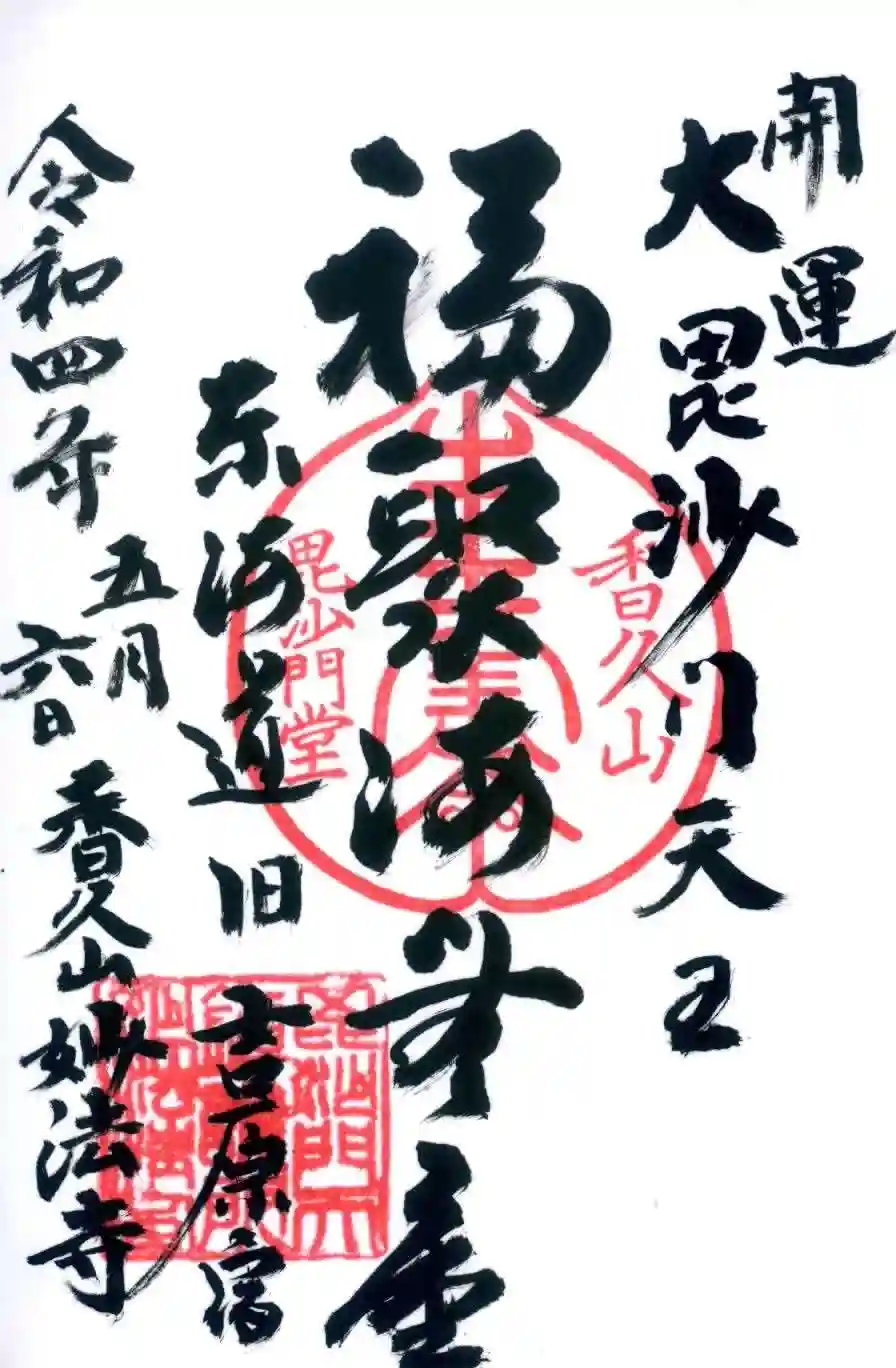 開運
大毘沙門天王
福聚海無量
東海道旧吉原宿
令和四年
五月
六日
香久山妙法寺
香久山
毘沙門堂